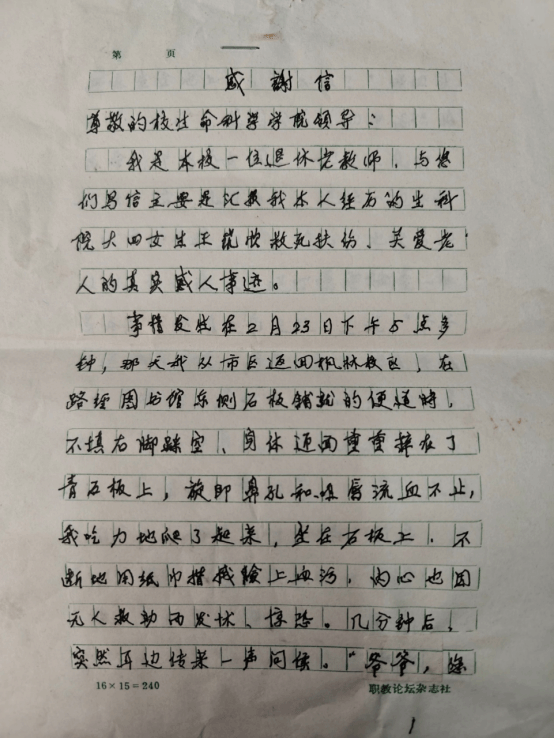 第 页
感谢信
尊敬的校生命科学学院领导：
我是本校一位退休老教师，与您
们写信主要是汇报我本人经历的生科
院大四女生王 救死扶伤、关爱老
人的真实感人事迹。
事情发生在2月23日下午5点多
钟，那天我从市区返回枫林校区，在
路经图书馆东侧石板铺就的便道时，
不慎右脚踩空、身体迎面重重摔在了
青石板上，旋即鼻孔和嘴唇流血不止，
我吃力地爬了起来，坐在石板上，不
断地用纸巾揩拭脸上血污，内心也因
无人救助而发怵、惊恐。几分钟后，
突然耳边传来一声问候。“爷爷，您
16×15=240 职教论坛杂志社
1